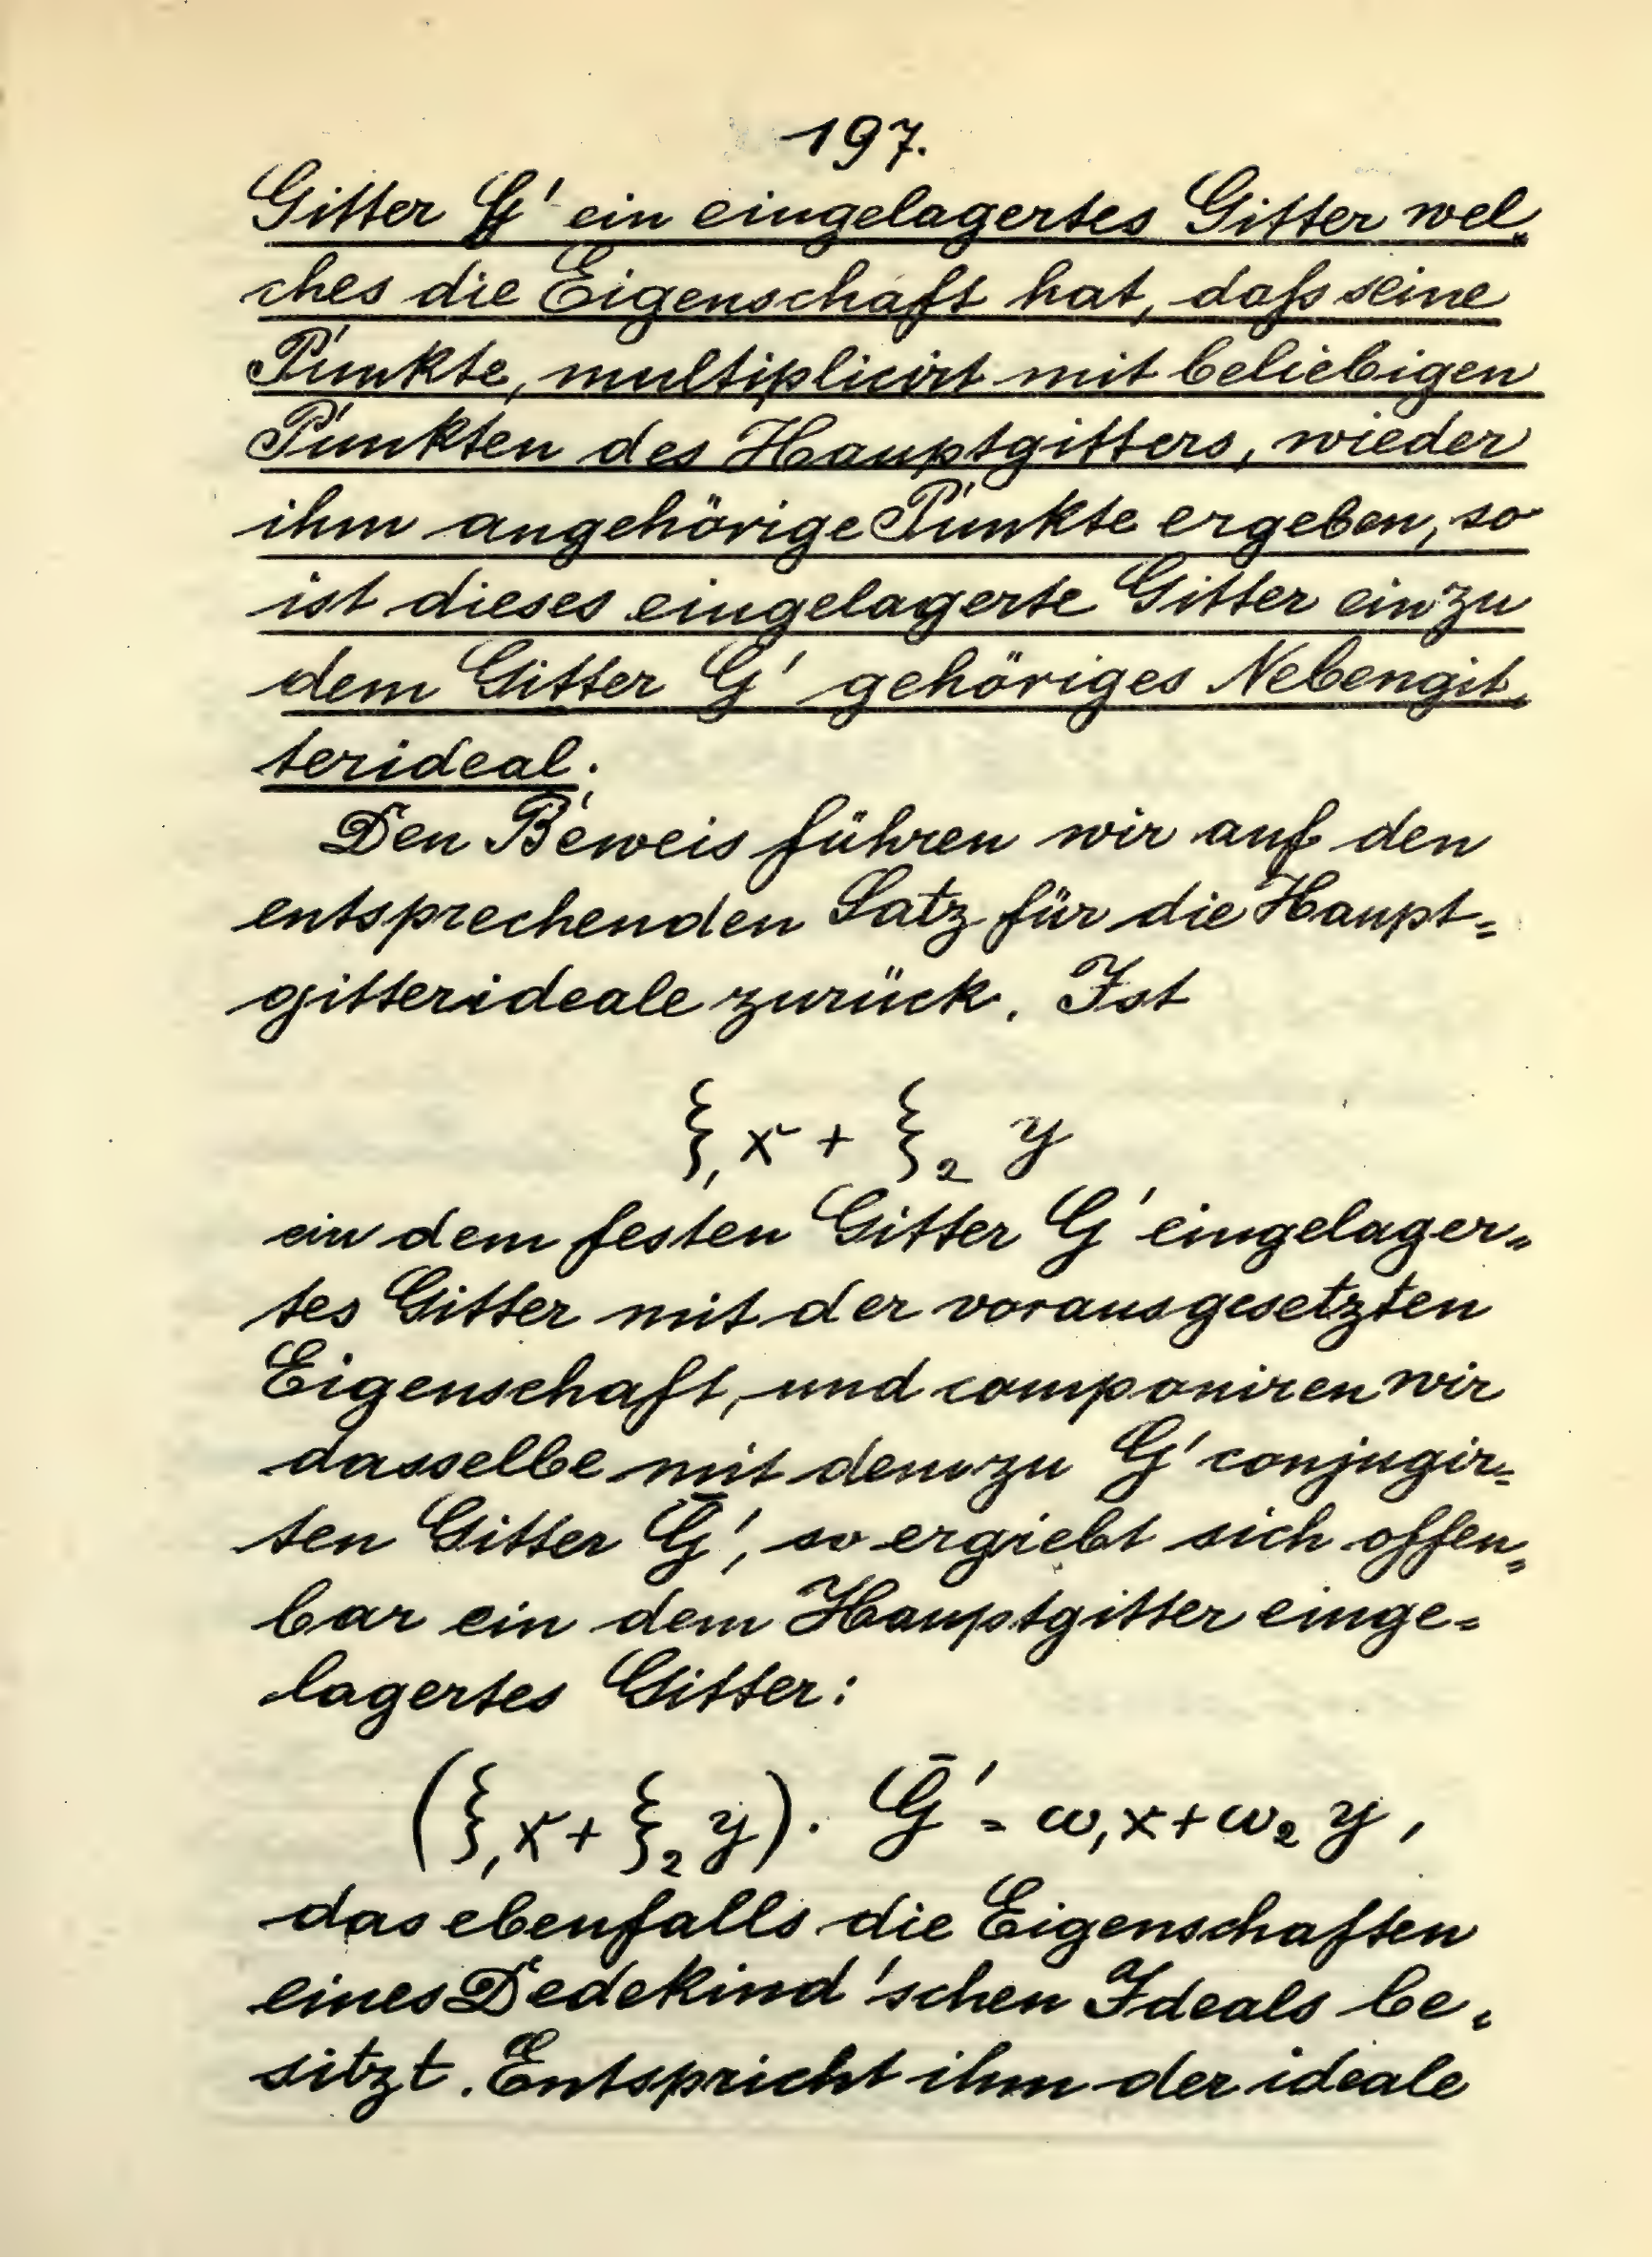 197.
Gitter G' ein eingelagertes Gitter wel=
ches die Eigenschaft hat, daß seine
Punkte, multiplicirt mit beliebigen
Punkten des Hauptgitters, wieder
ihm angehörige Punkte ergeben, so
ist dieses eingelagerte Gitter ein zu
dem Gitter G' gehöriges Nebengit=
terideal.
Den Beweis führen wir auf den
entsprechenden Satz für die Haupt=
gitterideale zurück. Ist
ξ₁x + ξ₂ y
ein dem festen Gitter G' eingelager=
tes Gitter mit der vorausgesetzten
Eigenschaft, und componiren wir
dasselbe mit dem zu G' conjugir=
ten Gitter Ḡ', so ergiebt sich offen=
bar ein dem Hauptgitter einge=
lagertes Gitter:
(ξ₁x + ξ₂y). Ḡ' = ω₁x + ω₂ y,
das ebenfalls die Eigenschaften
eines Dedekind'schen Ideals be=
sitzt. Entspricht ihm der ideale